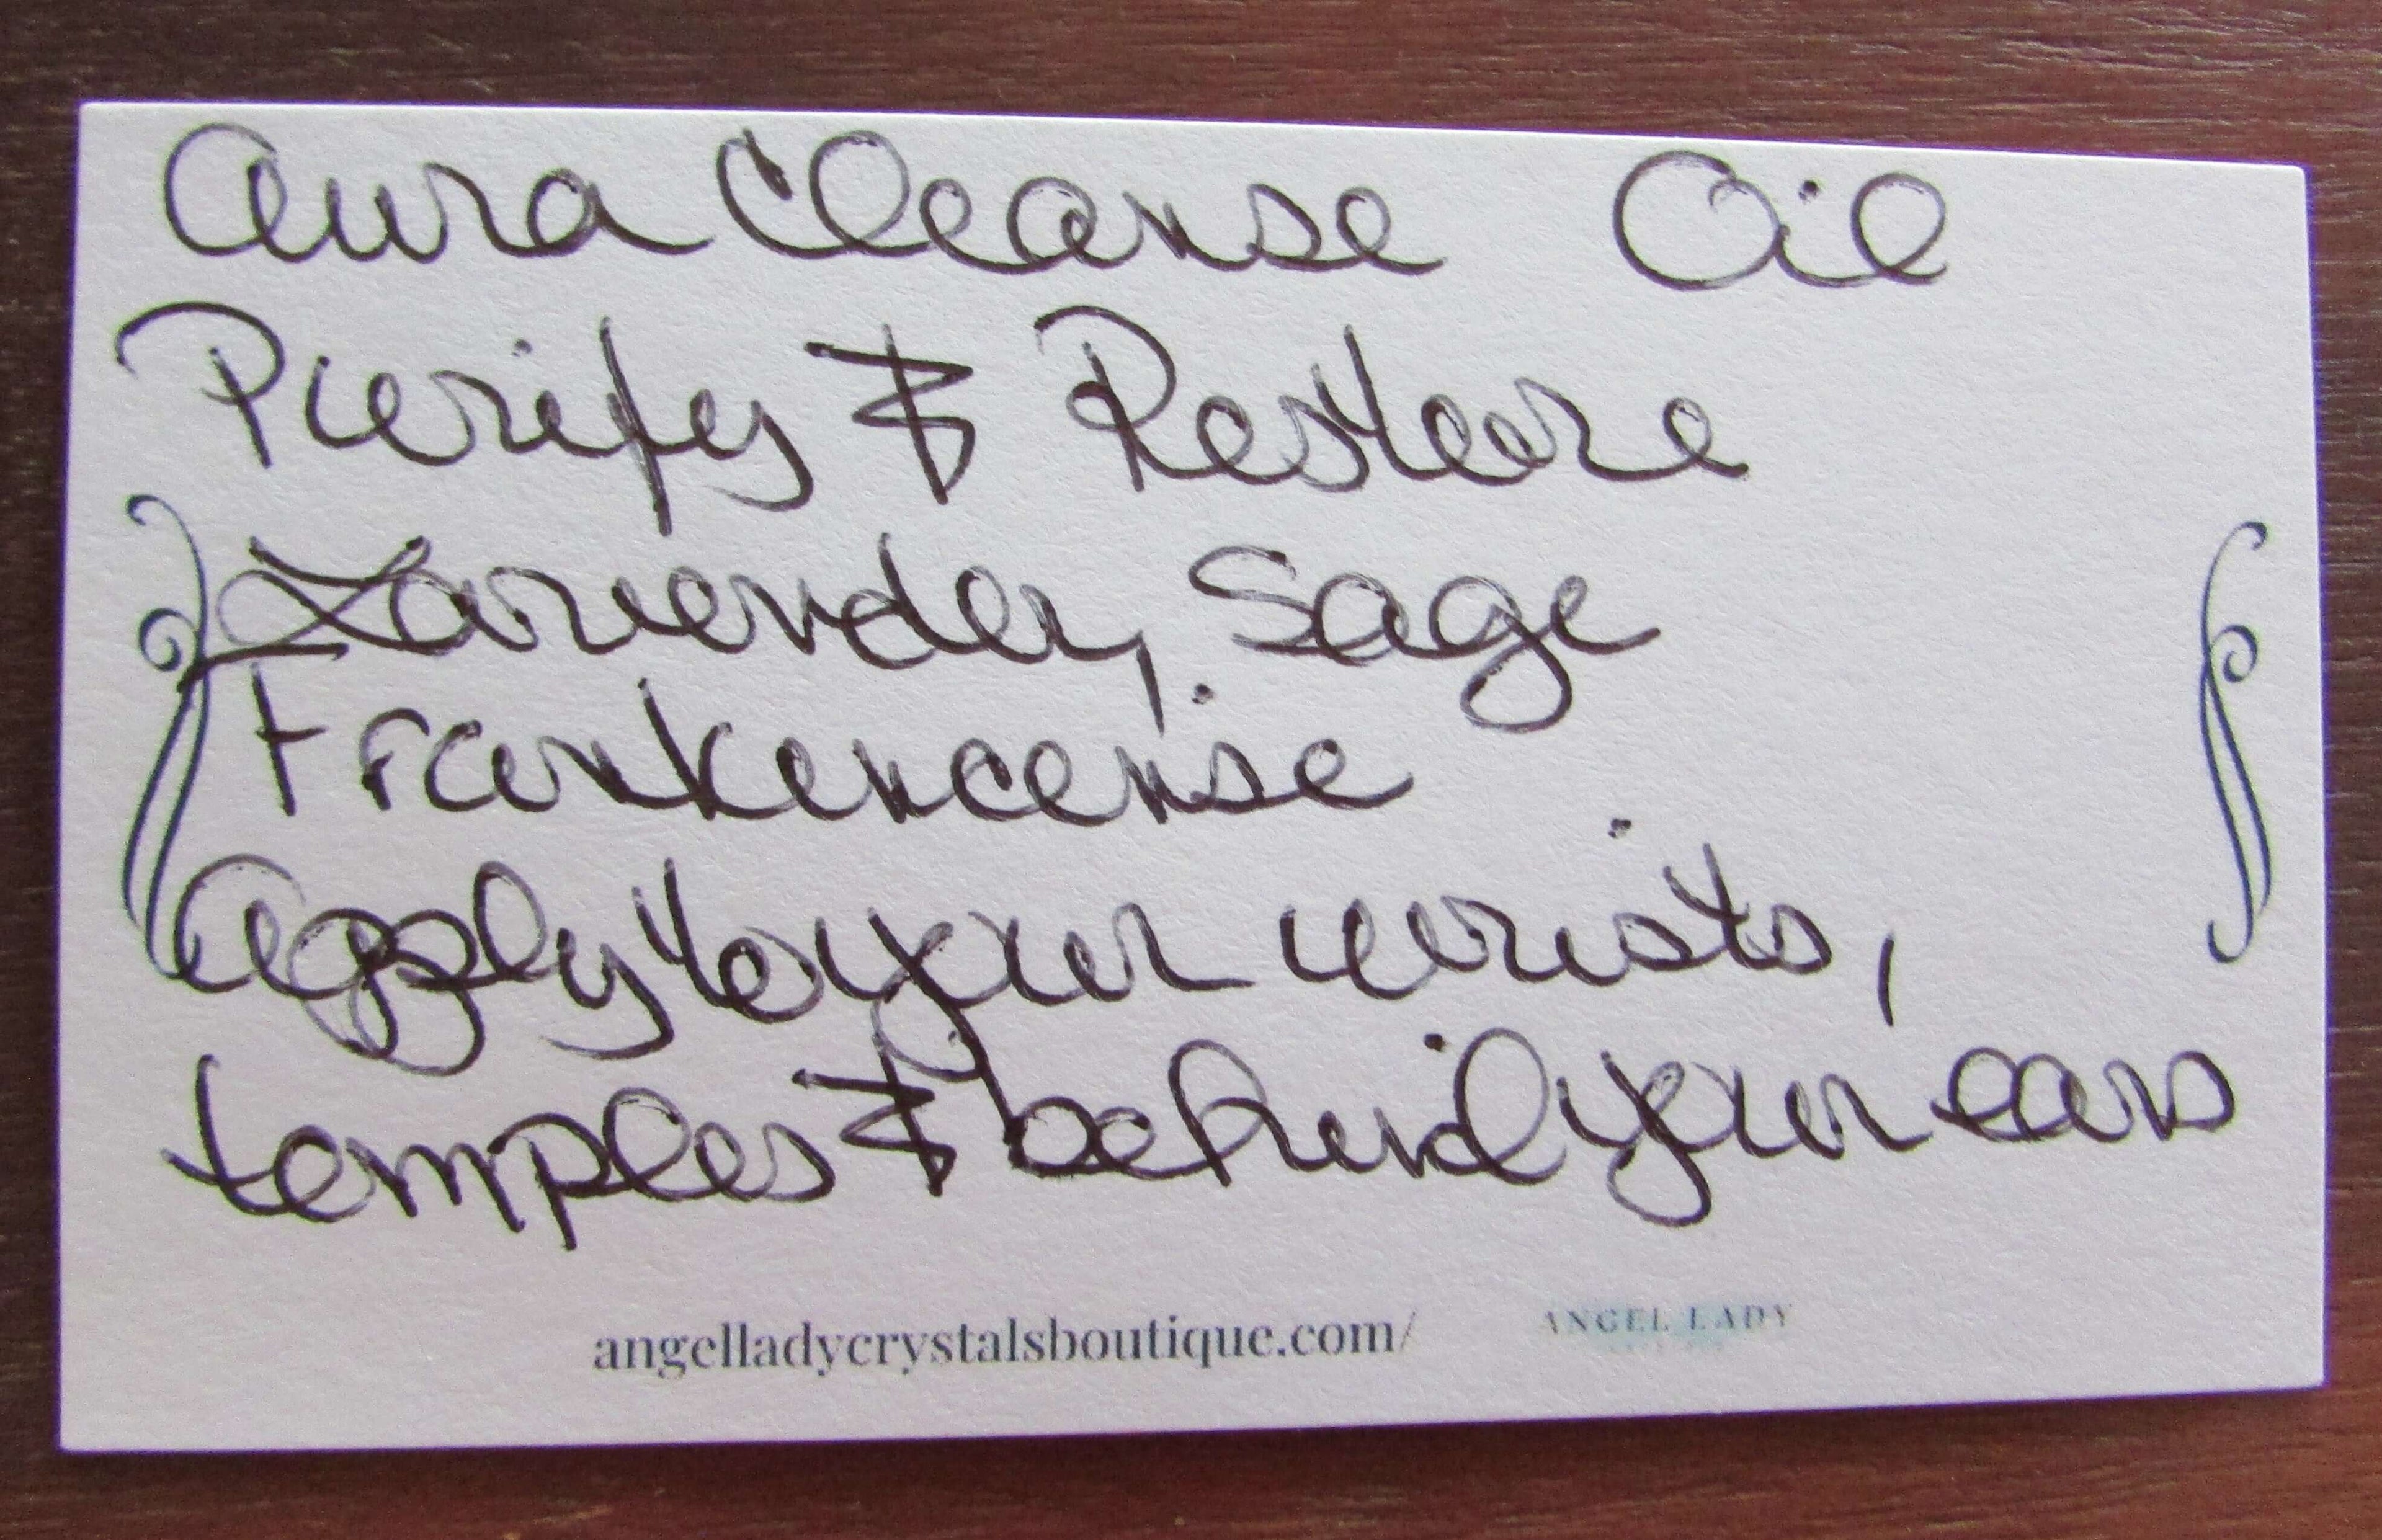 Aura Cleanse Oil
Purify & Restore
Lavender, Sage
Frankencense
Apply to your wrists,
temples & behind your ears
angelladycrystalsboutique.com/ ANGEL LADY